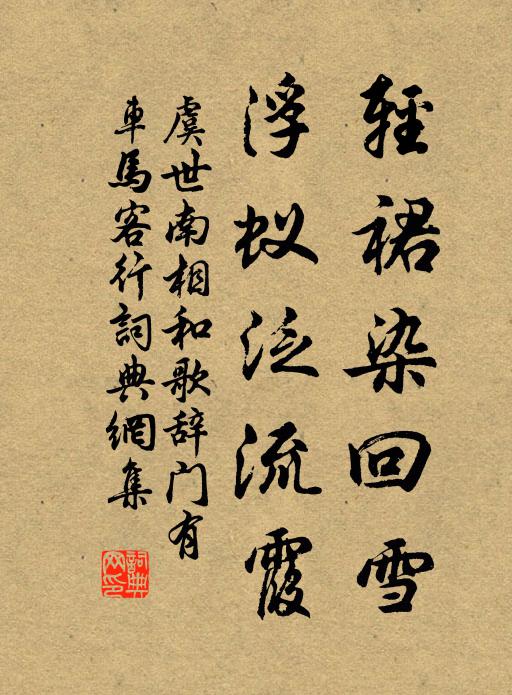 輕裙染回雪
浮蚁泛流霞
虞世南相和歌辞门有
車馬客行詞典網集
詞典
网印